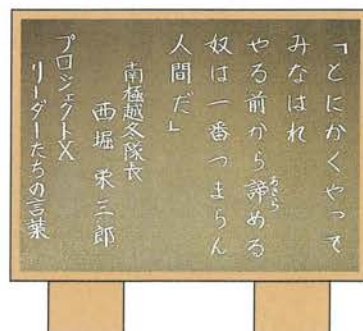 「とにかくやって
みなはれ
やる前から諦める
あきら
奴は一番つまらん
人間だ」
南極越冬隊長
西堀 栄三郎
プロジェクトX
リーダーたちの言葉